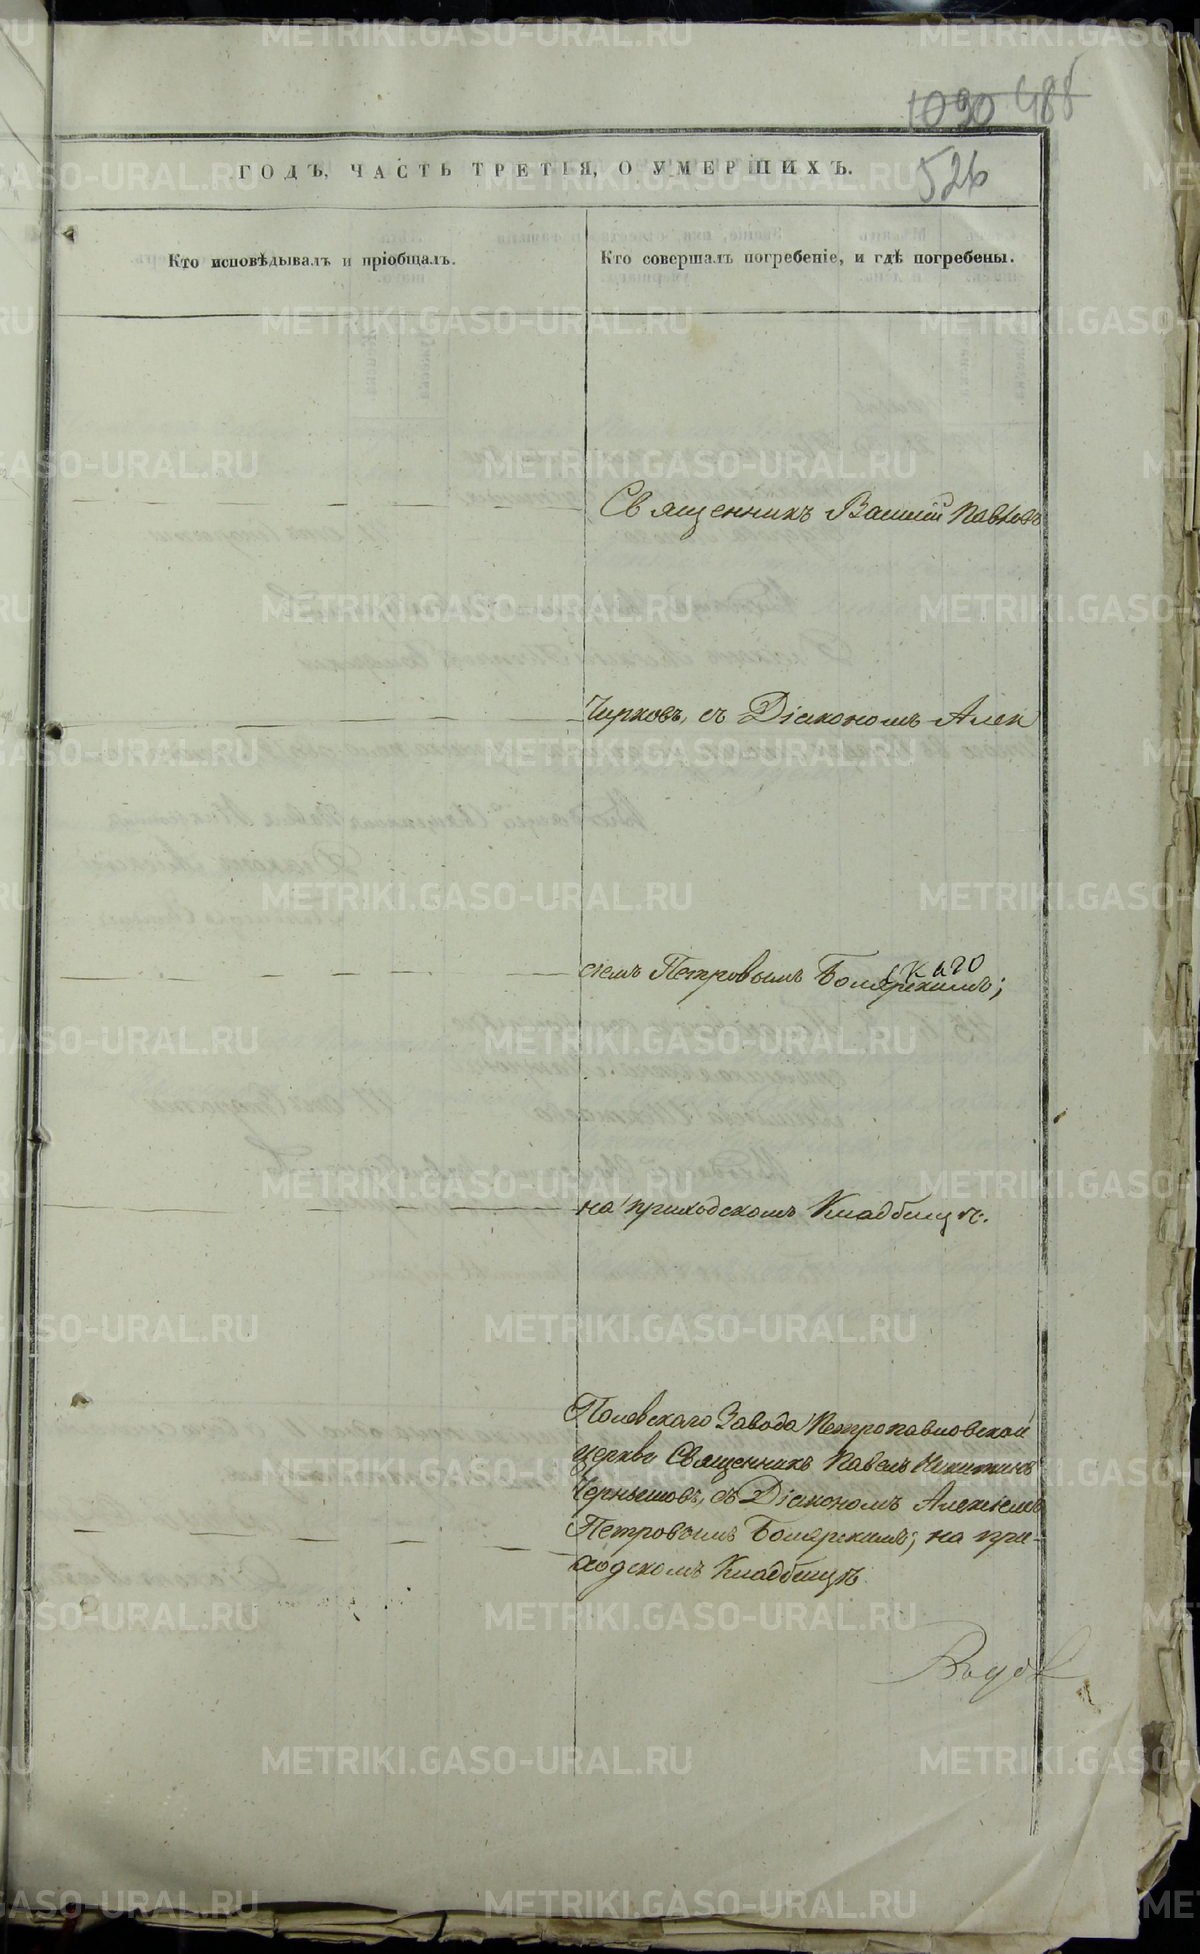 1090 488
526
ГОДЪ, ЧАСТЬ ТРЕТІЯ, О УМЕРШИХЪ.
Кто исповѣдывалъ и пріобщалъ.
Кто совершалъ погребеніе, и гдѣ погребены.
Священникъ Василій Павловъ
Чирковъ, съ Діакономъ Алек
сіемъ Петровымъ Боярскимъ;
на приходскомъ Кладбищѣ.
Полевскаго Завода Петропавловской
церкви Священникъ Павелъ Никитинъ
Чернышовъ, съ Діакономъ Алексіемъ
Петровымъ Боярскимъ; на при-
ходскомъ Кладбищѣ
METRIKI.GASO-URAL.RU